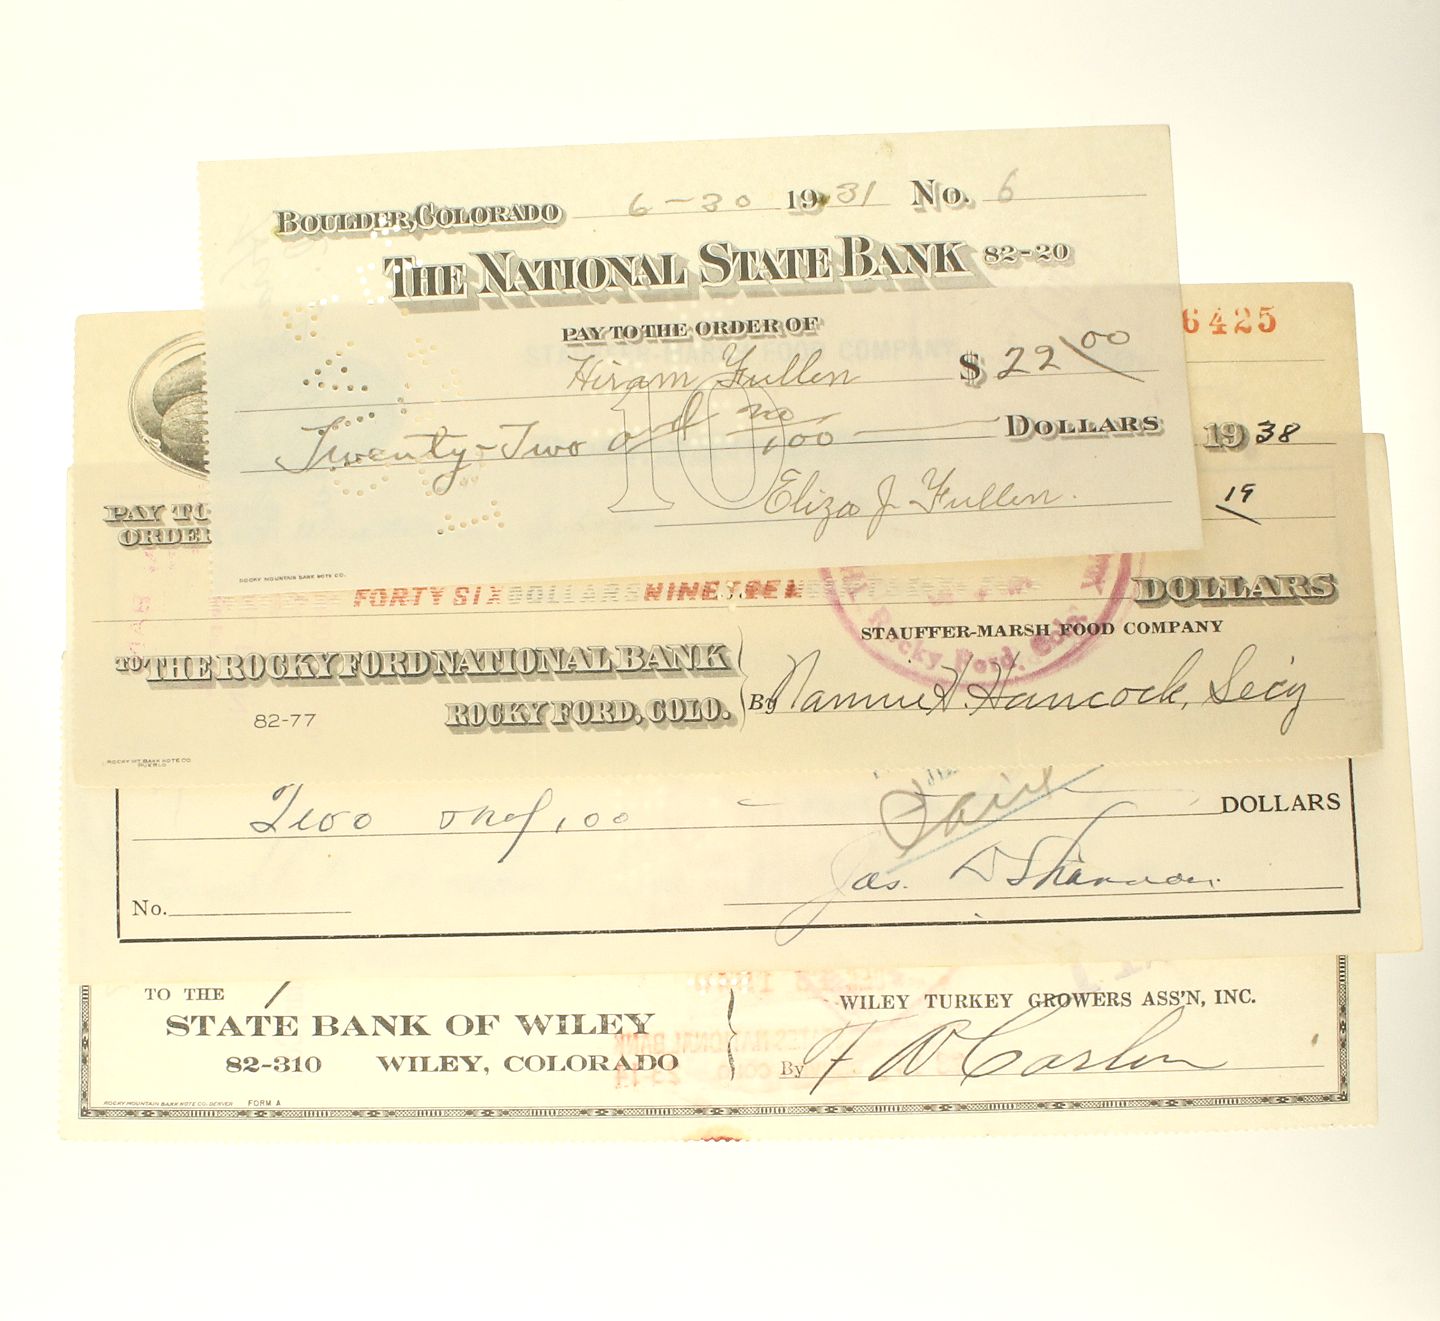 BOULDER, COLORADO 6-30 1931 No. 6
THE NATIONAL STATE BANK 82-20
PAY TO THE ORDER OF
Hiram Fullen $ 22 00
Twenty-Two and no/100 DOLLARS
Eliza J Fullen.
ROCKY MOUNTAIN BANK NOTE CO.
6425
1938
PAY TO
ORDER
19
FORTY SIX DOLLARS NINETEEN
DOLLARS
STAUFFER-MARSH FOOD COMPANY
TO THE ROCKY FORD NATIONAL BANK
ROCKY FORD, COLO.
82-77
By Nannie H. Hancock, Secy
Rocky Ford, Colo.
ROCKY MT. BANK NOTE CO.
PUEBLO
Two and /00 DOLLARS
Jas. D Shannon.
No.
TO THE 1
STATE BANK OF WILEY
82-310 WILEY, COLORADO
WILEY TURKEY GROWERS ASS'N, INC.
By
ROCKY MOUNTAIN BANK NOTE CO. DENVER FORM A